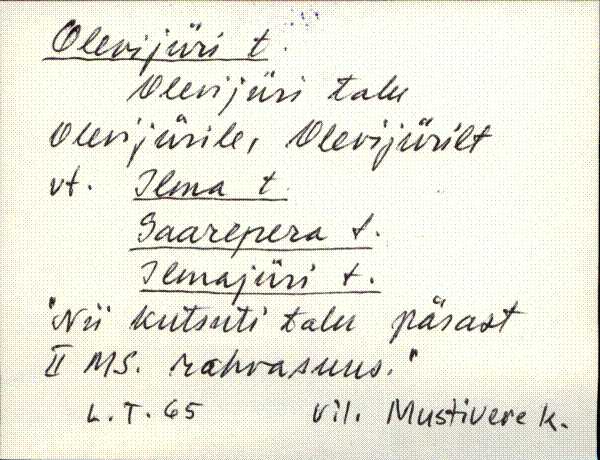 Olevijüri t.
Olevijüri talu
Olevijürile, Olevijürilt
vt. Ilma t.
Saarepera t.
Ilmajüri t.
"Nii kutsuti talu pärast
II MS. rahvasuus."
L.T. 65 Vil. Mustivere k.